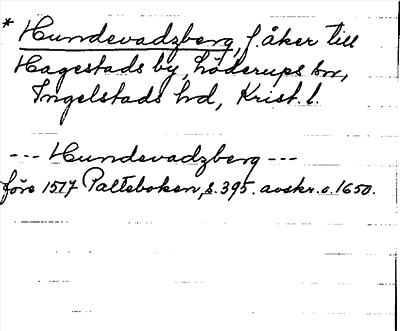 * Hundevadzberg, f. åker till
Hagestads by, Löderups sn,
Ingelstads hd, Krist. l.
--- Hundevadzberg ---
före 1517 Palteboken, s. 395. avskr. o. 1650.